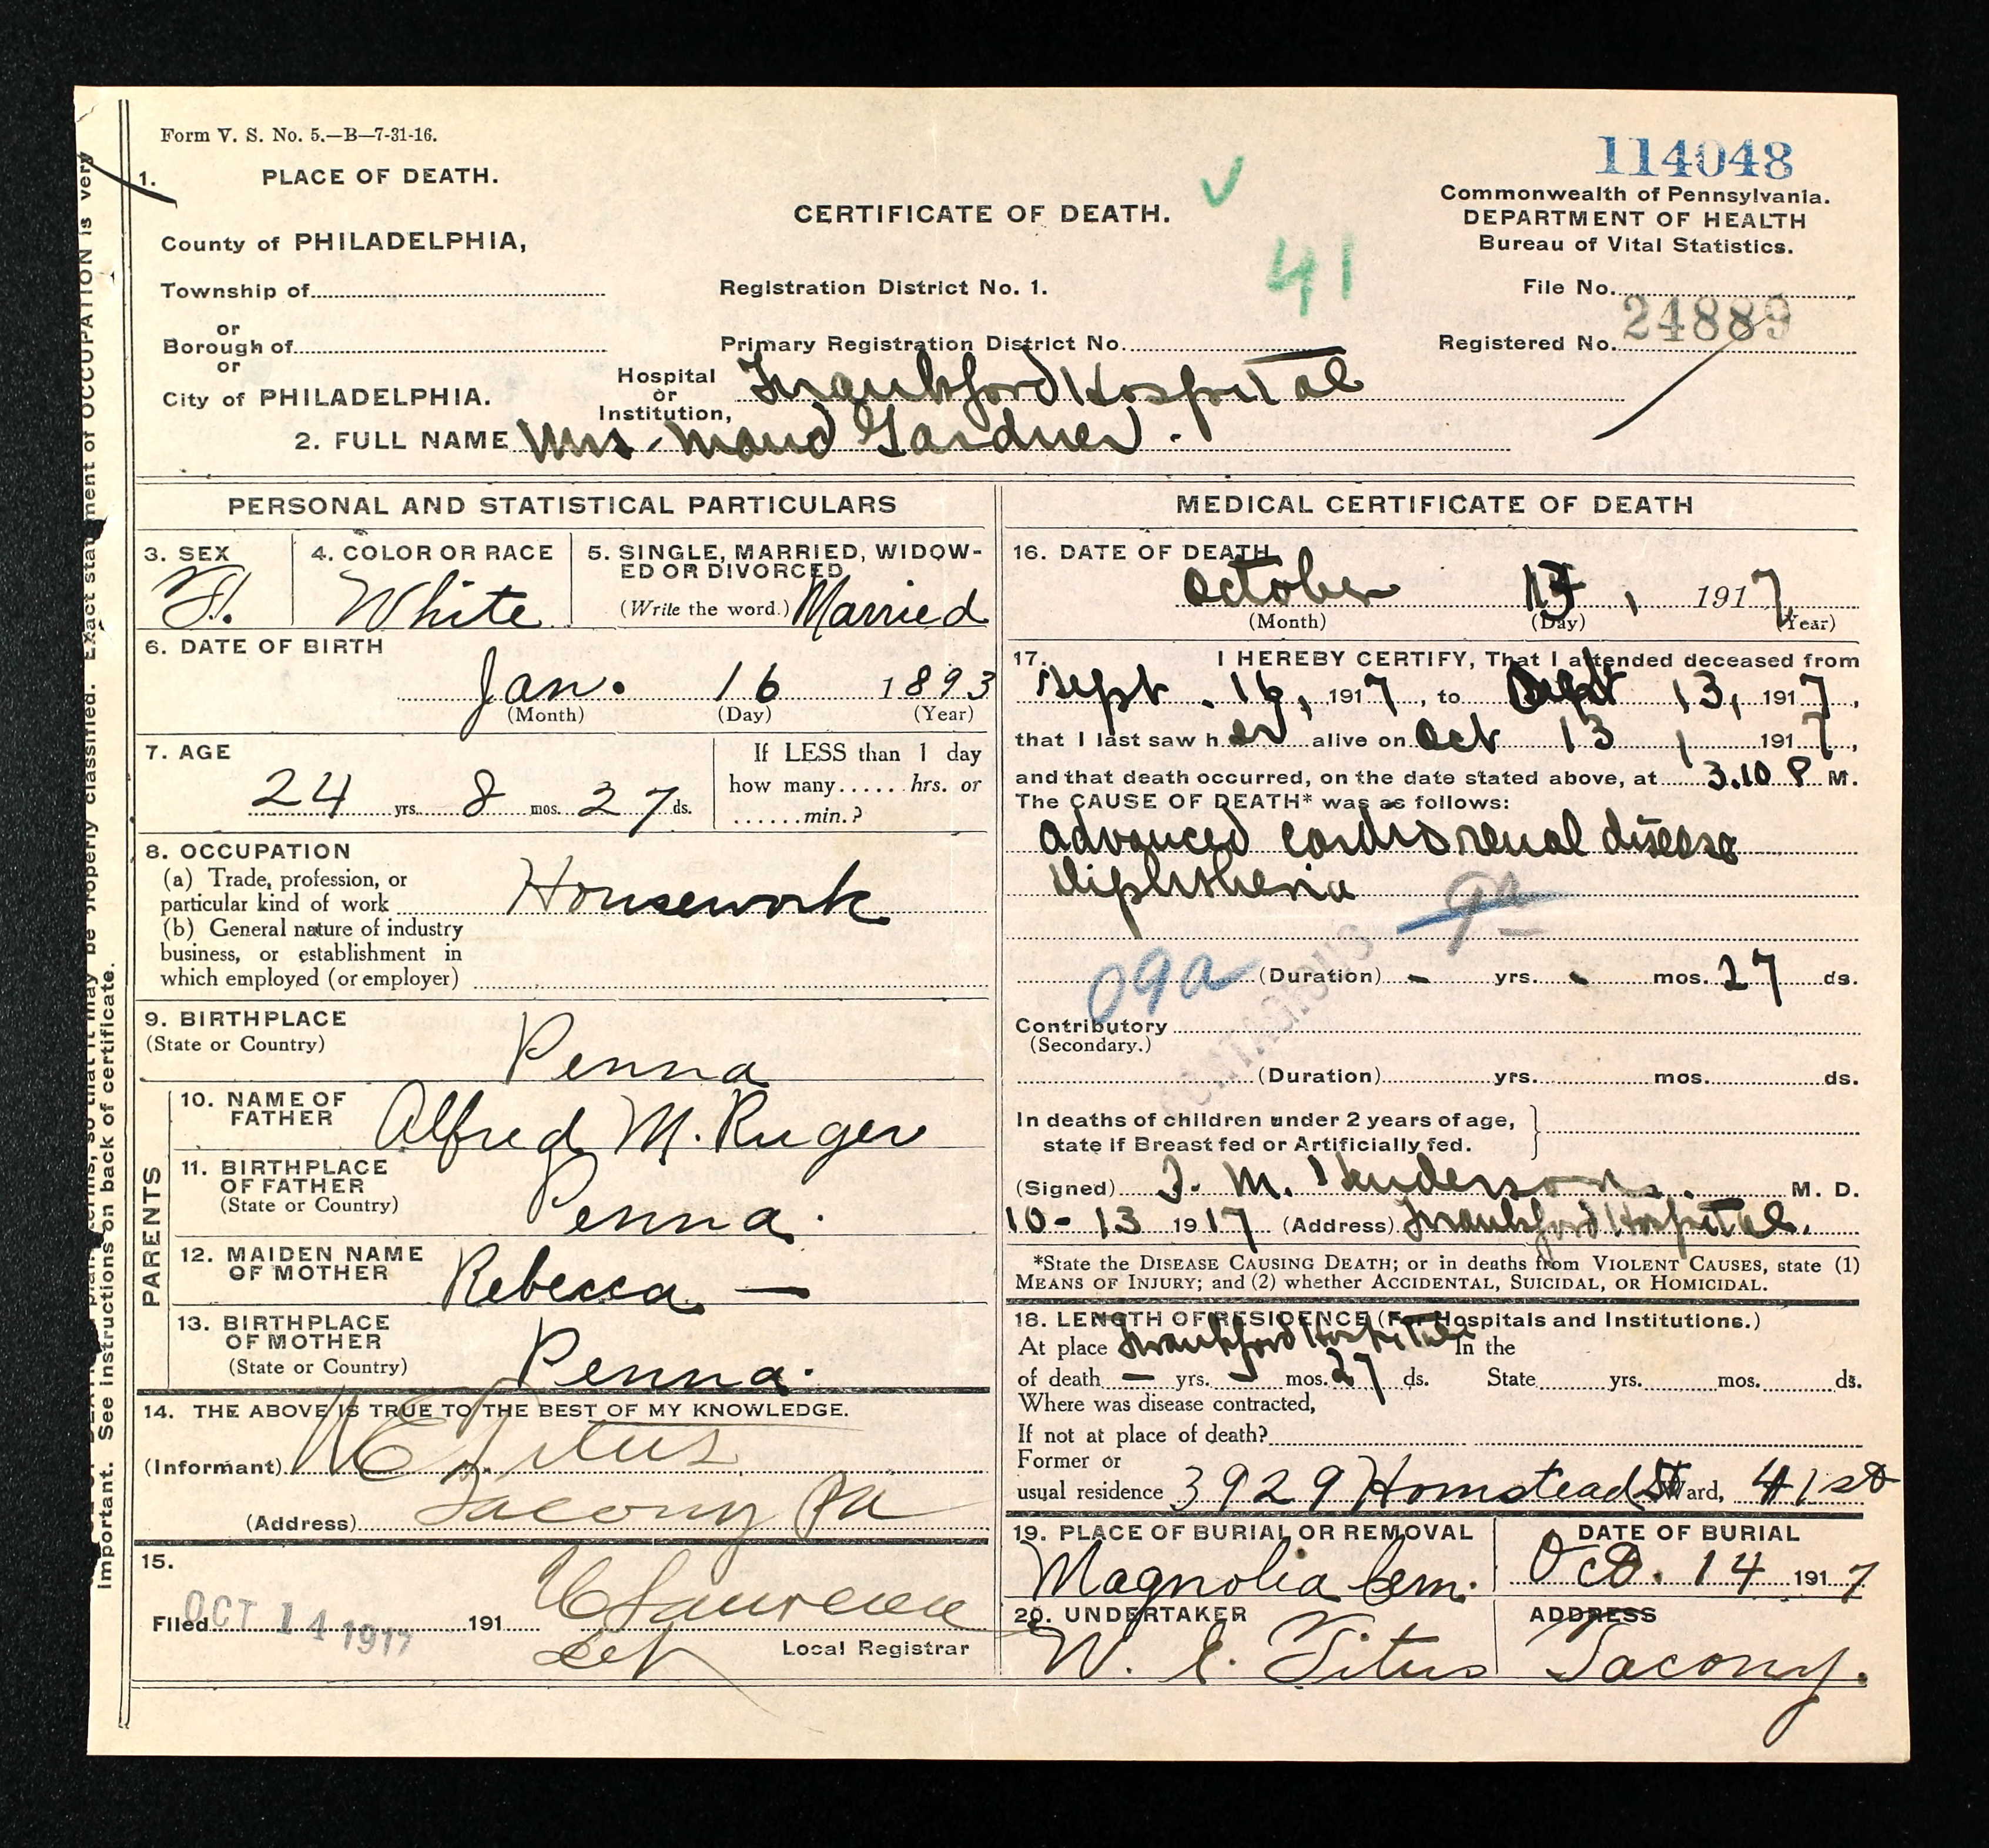 Form V. S. No. 5.—B—7-31-16.
114048
1. PLACE OF DEATH.
CERTIFICATE OF DEATH.
Commonwealth of Pennsylvania.
DEPARTMENT OF HEALTH
Bureau of Vital Statistics.
County of PHILADELPHIA,
41
Township of
Registration District No. 1.
File No.
or
Borough of
Primary Registration District No.
Registered No. 24889
or
City of PHILADELPHIA.
Hospital or Institution, Frankford Hospital
2. FULL NAME Mrs. Maud Gardner.
PERSONAL AND STATISTICAL PARTICULARS
3. SEX
F.
4. COLOR OR RACE
White
5. SINGLE, MARRIED, WIDOW-
ED OR DIVORCED
(Write the word.) Married
6. DATE OF BIRTH
Jan. 16 1893
(Month) (Day) (Year)
7. AGE
24 yrs. 8 mos. 27 ds.
If LESS than 1 day
how many..... hrs. or
......min.?
8. OCCUPATION
(a) Trade, profession, or
particular kind of work Housework
(b) General nature of industry
business, or establishment in
which employed (or employer)
9. BIRTHPLACE
(State or Country)
Penna
PARENTS
10. NAME OF
FATHER
Alfred M. Ruger
11. BIRTHPLACE
OF FATHER
(State or Country)
Penna.
12. MAIDEN NAME
OF MOTHER
Rebecca —
13. BIRTHPLACE
OF MOTHER
(State or Country)
Penna.
14. THE ABOVE IS TRUE TO THE BEST OF MY KNOWLEDGE.
(Informant) W E Titus
(Address) Tacony Pa
15.
Filed OCT 14 1917 191
Local Registrar
MEDICAL CERTIFICATE OF DEATH
16. DATE OF DEATH
October 13, 1917
(Month) (Day) (Year)
17. I HEREBY CERTIFY, That I attended deceased from
Sept. 16, 1917, to 13, 1917,
that I last saw her alive on Oct 13, 1917,
and that death occurred, on the date stated above, at 3.10 P M.
The CAUSE OF DEATH* was as follows:
advanced cardio renal disease
diphtheria
9a
09a (Duration) - yrs. - mos. 27 ds.
CONTAGIOUS
Contributory
(Secondary.)
(Duration) yrs. mos. ds.
In deaths of children under 2 years of age,
state if Breast fed or Artificially fed.
(Signed) J. M. Henderson. M. D.
10-13 1917 (Address) Frankford Hospital.
*State the DISEASE CAUSING DEATH; or in deaths from VIOLENT CAUSES, state (1)
MEANS OF INJURY; and (2) whether ACCIDENTAL, SUICIDAL, OR HOMICIDAL.
18. LENGTH OF RESIDENCE (For Hospitals and Institutions.)
At place Frankford Hospital In the
of death — yrs. - mos. 27 ds. State yrs. mos. ds.
Where was disease contracted,
If not at place of death?
Former or
usual residence 3929 Homstead St Ward, 41st
19. PLACE OF BURIAL OR REMOVAL
Magnolia Cem.
DATE OF BURIAL
Oct. 14 1917
20. UNDERTAKER
W. E. Titus
ADDRESS
Tacony.
important. See instructions on back of certificate.